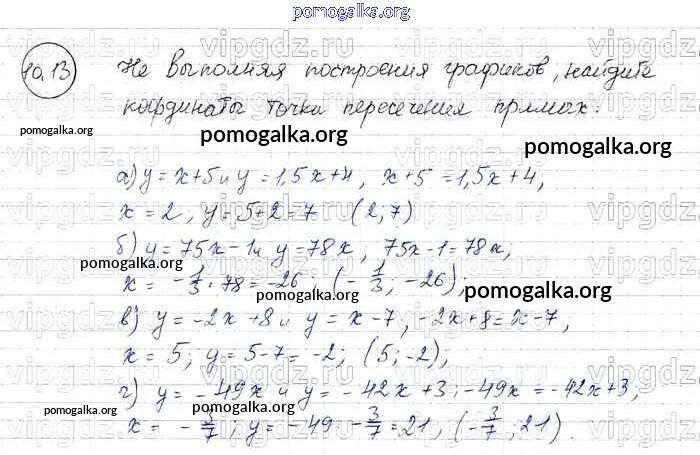 pomogalka.org
10.13 Не выполняя построения графиков, найдите
координаты точки пересечения прямых.
pomogalka.org pomogalka.org pomogalka.org
а) y = x+5 и y = 1,5x+4, x+5 = 1,5x+4,
x = 2, y = 5+2 = 7 (2; 7)
б) y = 75x-1 и y = 78x, 75x-1 = 78x,
pomogalka.org
x = -1/3 · 78 = -26; (-1/3; -26);
pomogalka.org pomogalka.org
в) y = -2x+8 и y = x-7, -2x+8 = x-7,
x = 5; y = 5-7 = -2; (5; -2);
г) y = -49x и y = -42x+3; -49x = -42x+3,
pomogalka.org pomogalka.org pomogalka.org
x = -3/7; y = -49 · -3/7 = 21, (-3/7; 21).